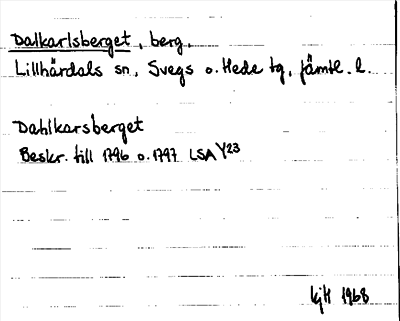 Dalkarlsberget, berg.
Lillhärdals sn, Svegs o. Hede tg, Jämtl. l.
Dahlkarsberget
Beskr. till 1796 o. 1797 LSA Y23
KjH 1968